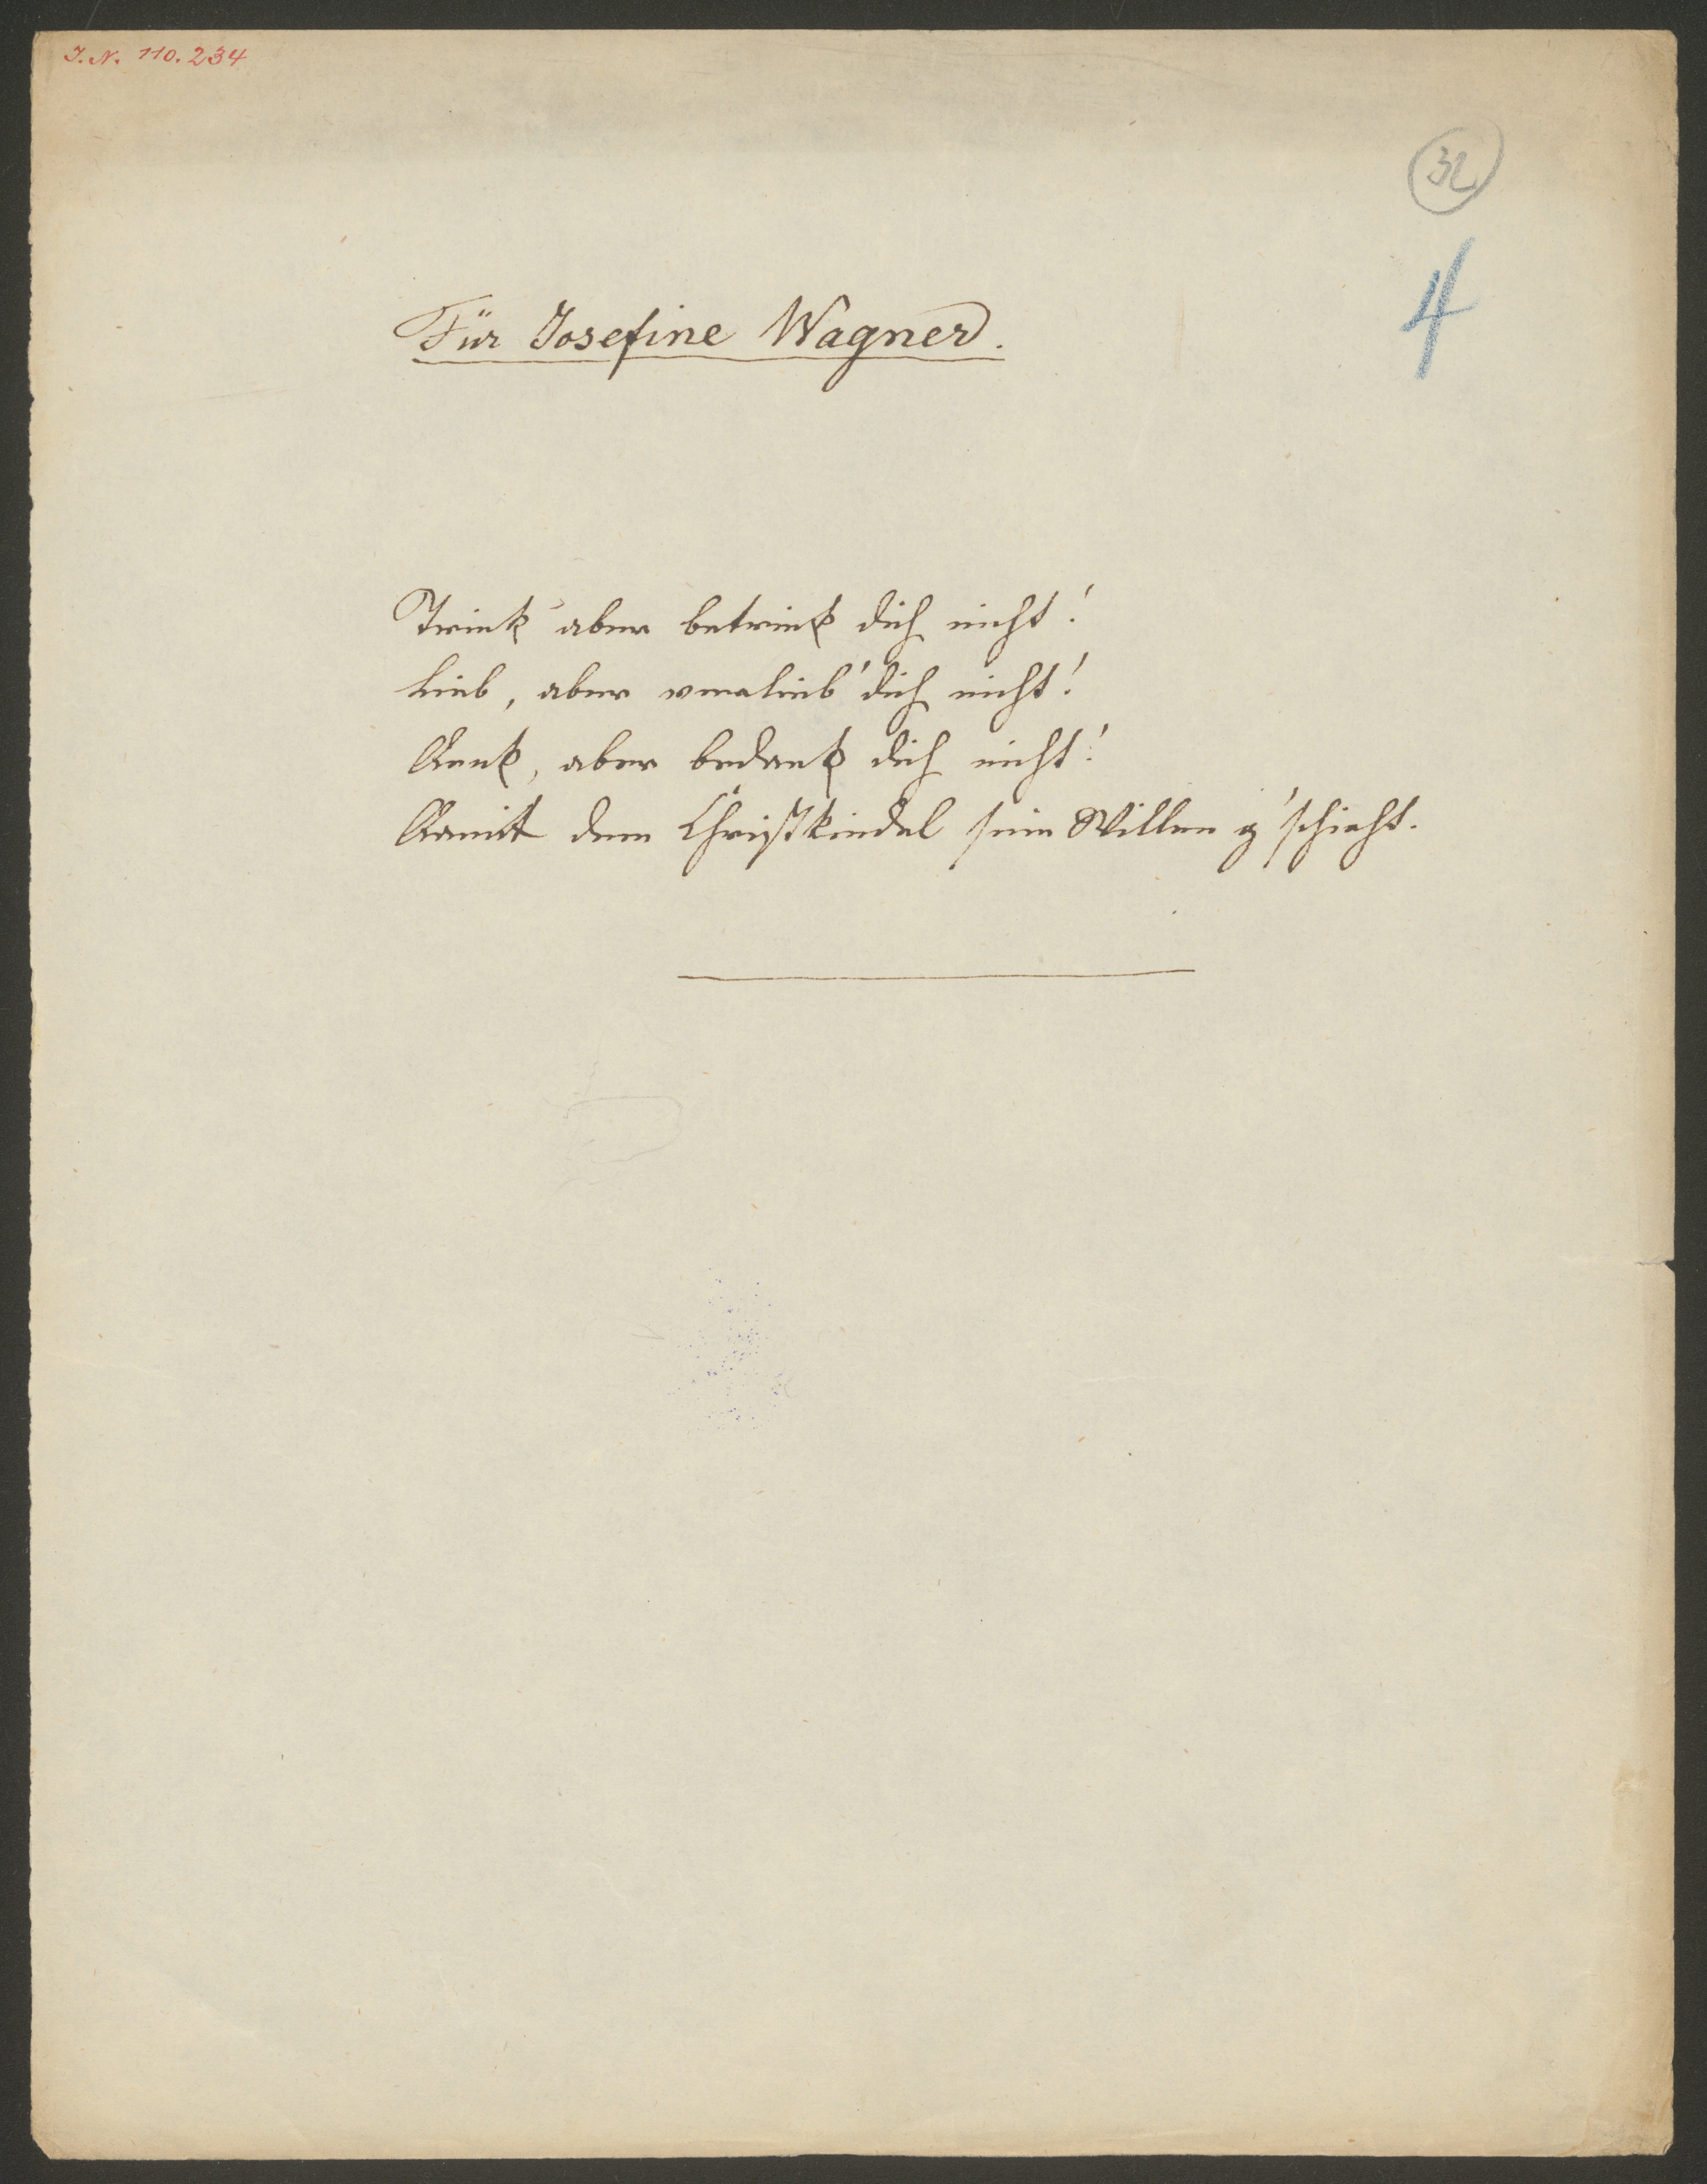 J.N. 110.234
32
4
Für Josefine Wagner.
Trink aber betrink dich nicht!
Lieb, aber verlieb' dich nicht!
Denk, aber bedank dich nicht!
Damit dem Christkindel sein Willen g'schieht.